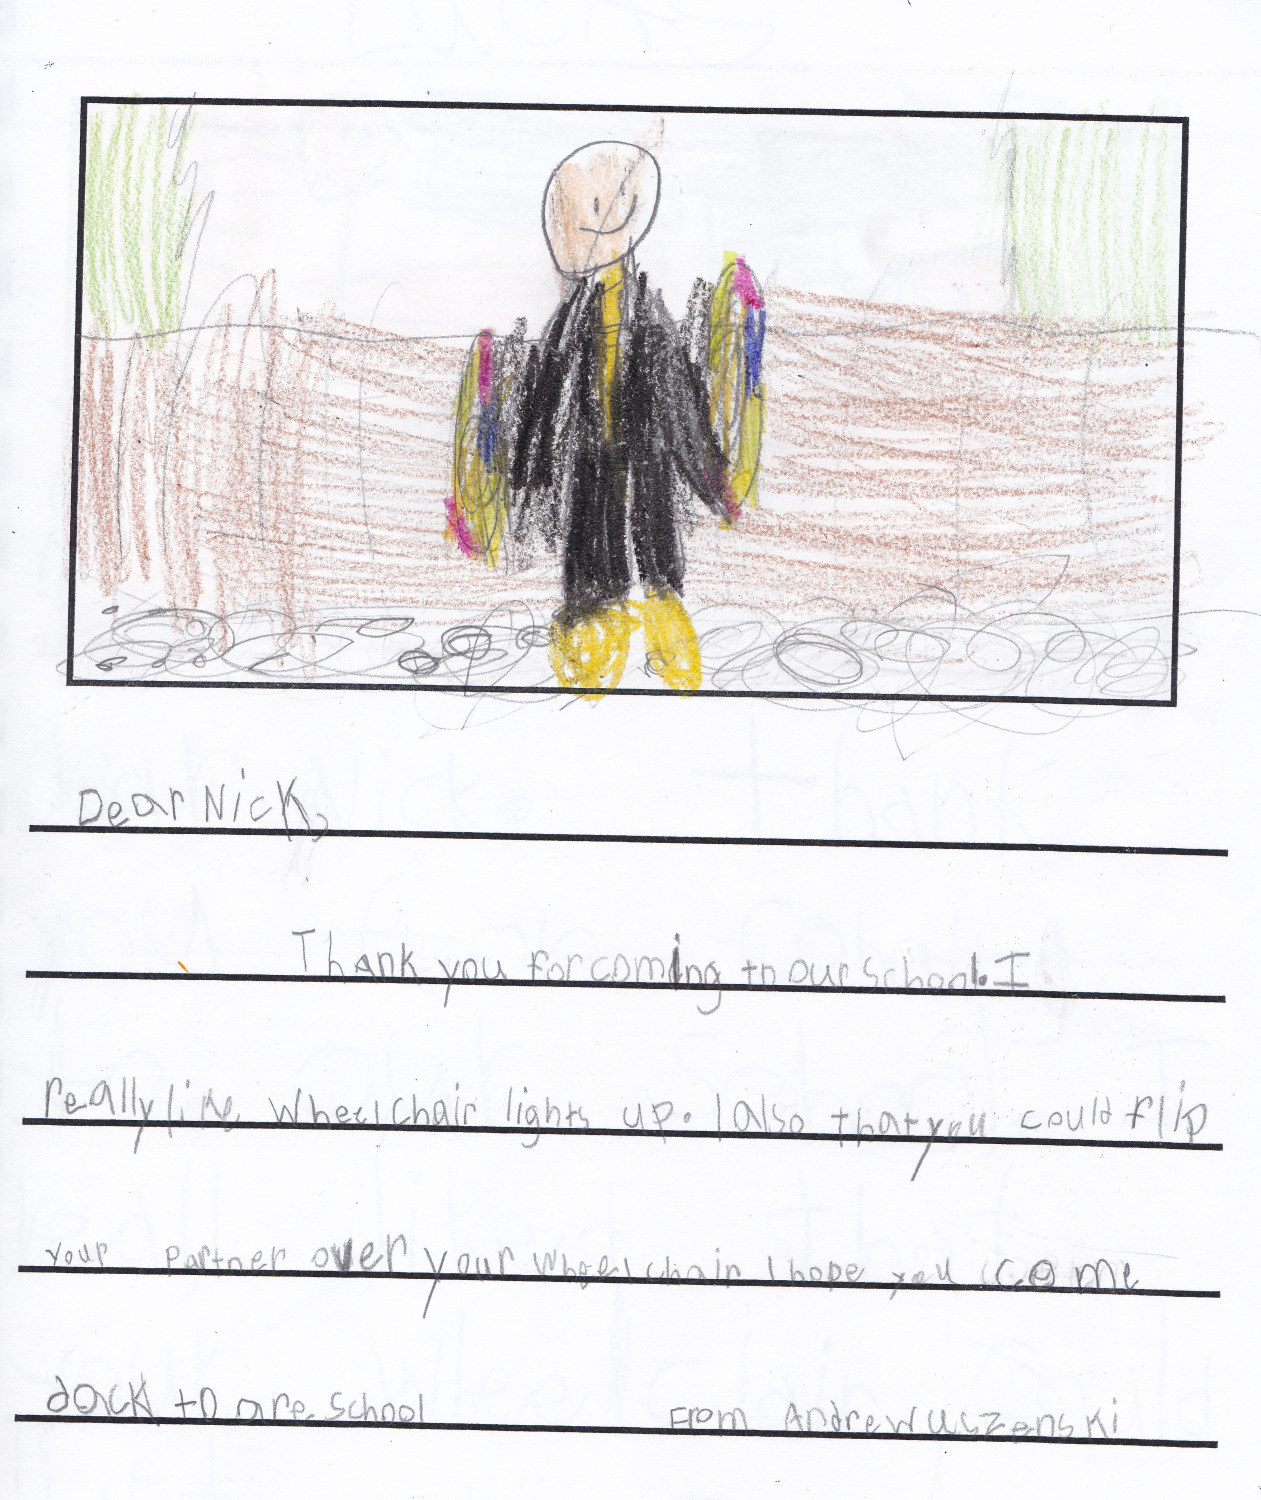 Dear Nick,
Thank you for coming to our school. I
really like wheelchair lights up. I also that you could flip
your partner over your wheelchair I hope you come
dack to are school From Andrew uszenski